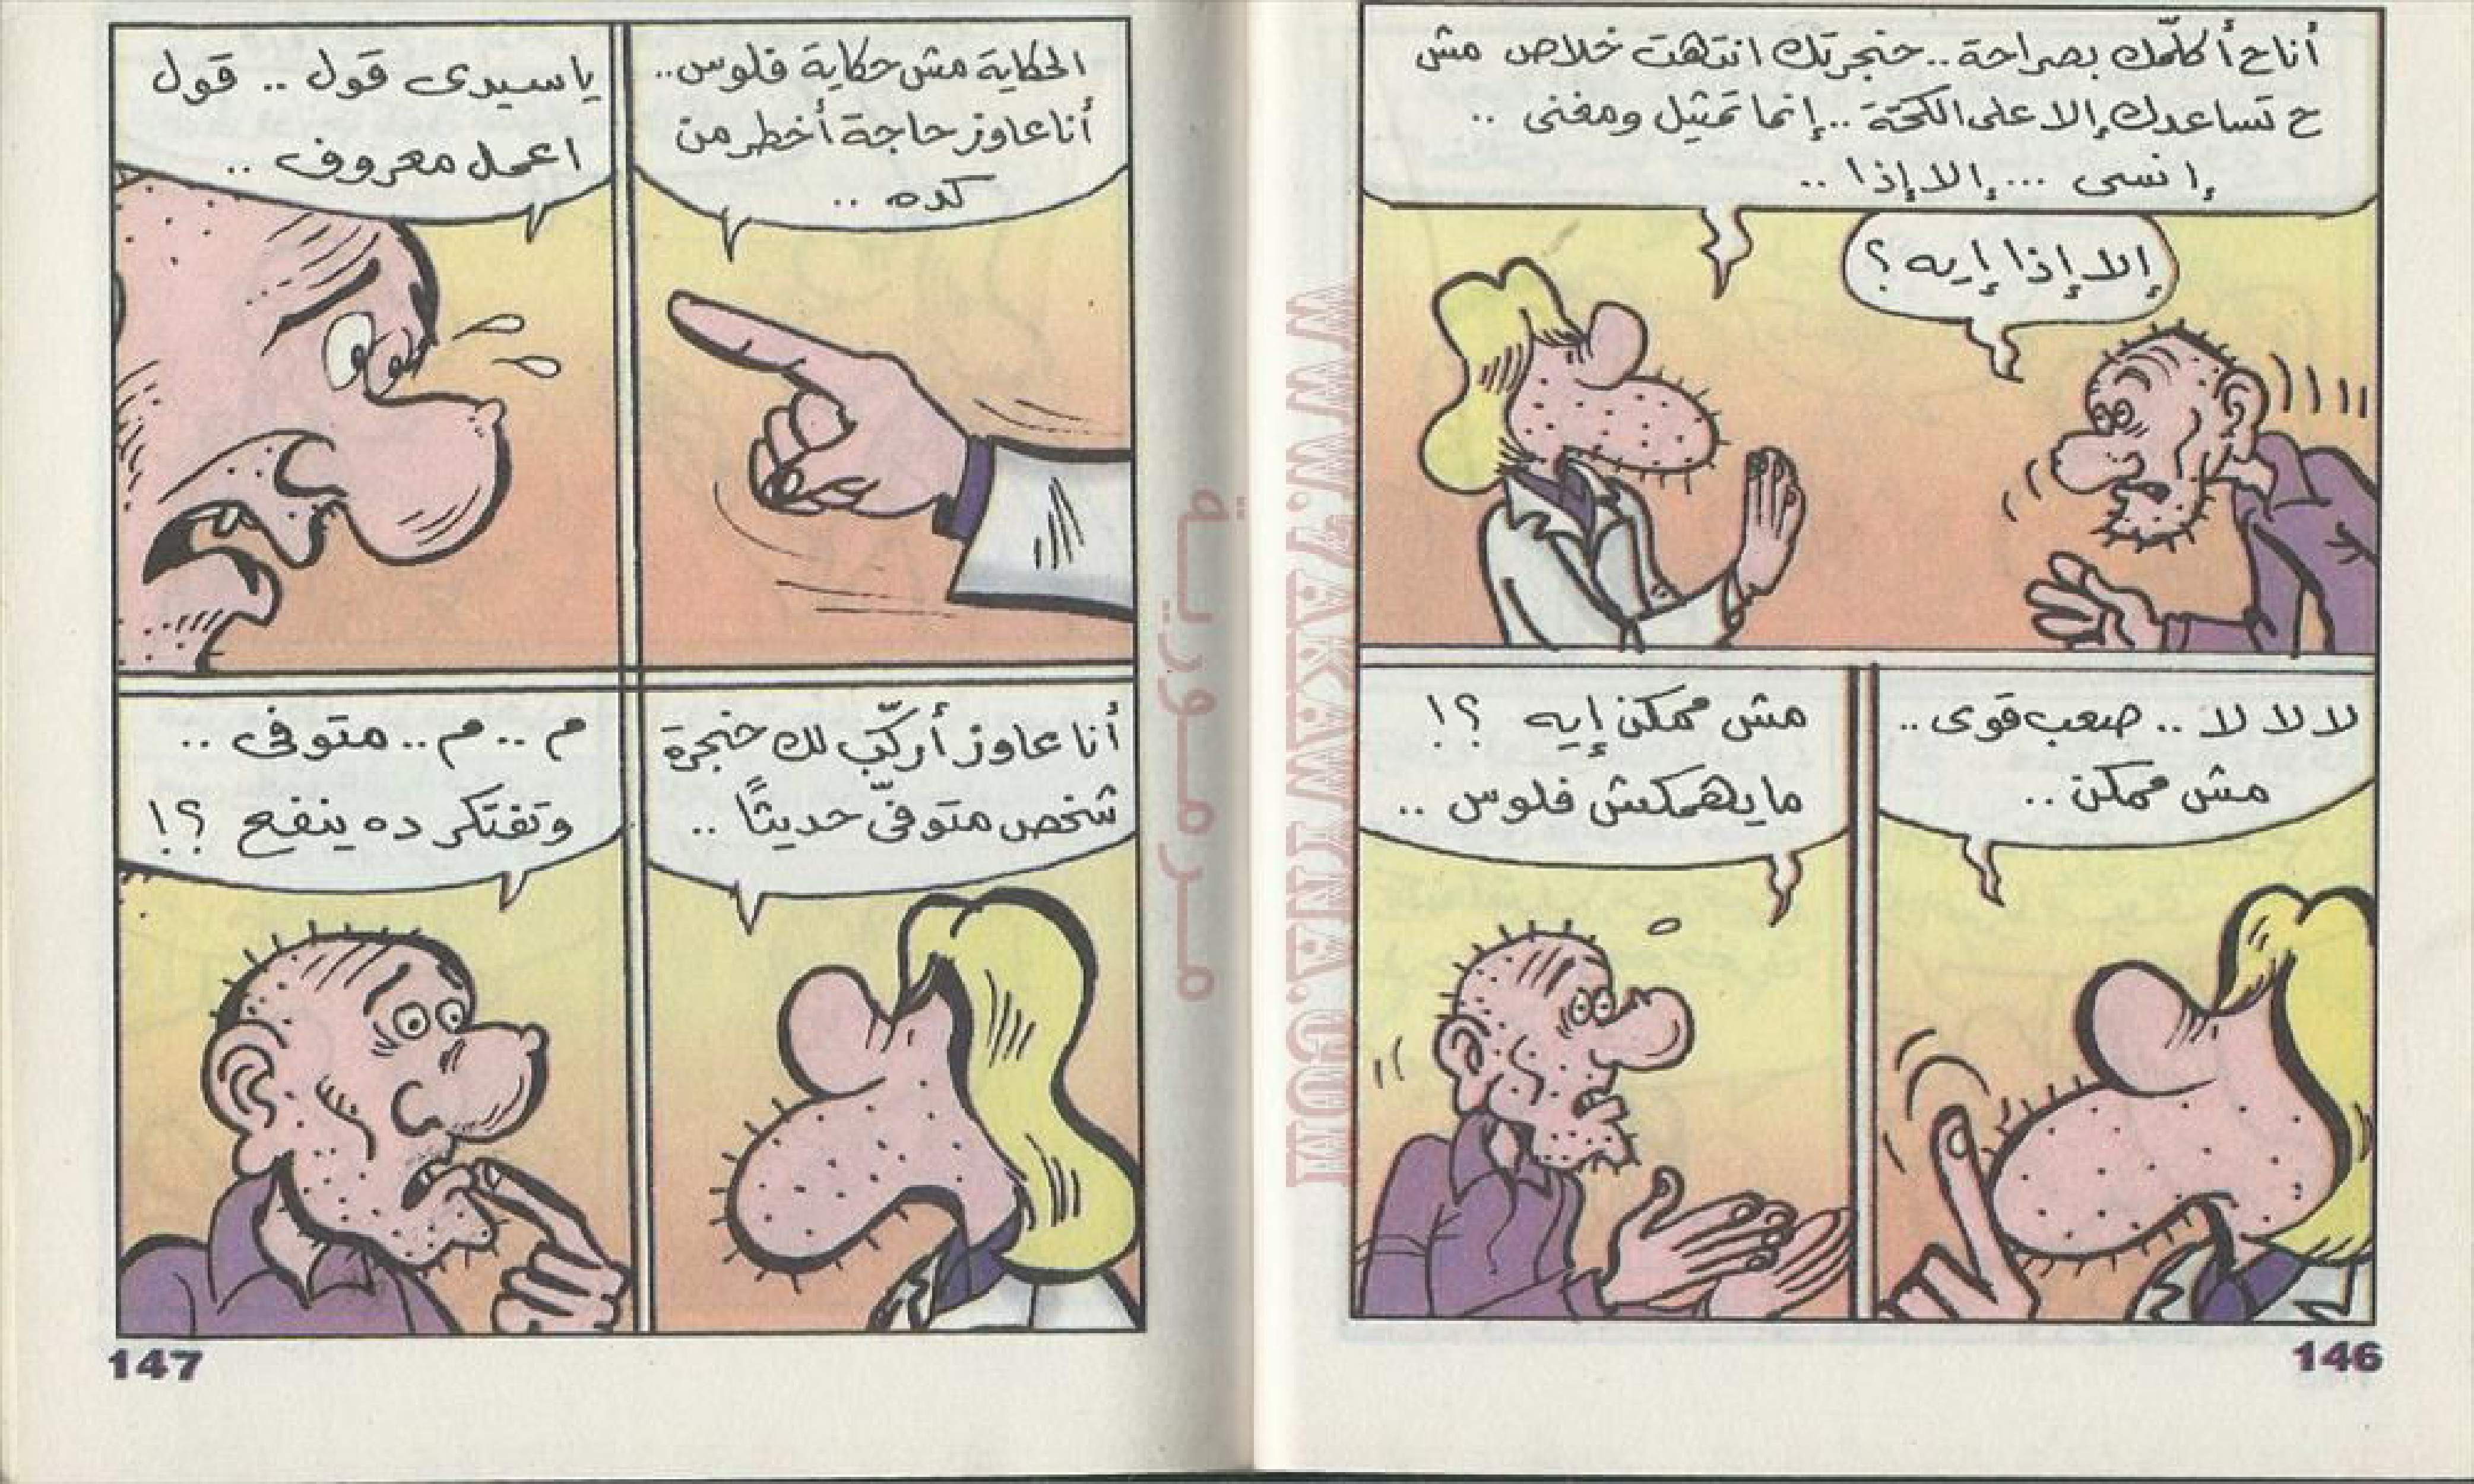 أنا ح أكلّمك بصراحة.. حنجرتك انتهت خلاص مش
ح تساعدك إلا على الكحة.. إنما تمثيل ومغنى ..
إنسى ... إلا إذا ..
إلا إذا إيه ؟
لا لا لا .. صعب قوى ..
مش ممكن ..
مش ممكن إيه ؟!
ما يهمكش فلوس ..
146
الحكاية مش حكاية فلوس..
أنا عاوز حاجة أخطر من
كده ..
يا سيدى قول .. قول
اعمل معروف ..
أنا عاوز أركّب لك حنجرة
شخص متوفّى حديثًا ..
م .. م .. متوفى ..
وتفتكر ده ينفع ؟!
147
مرمورية
WWW.ARKAWINA.COM